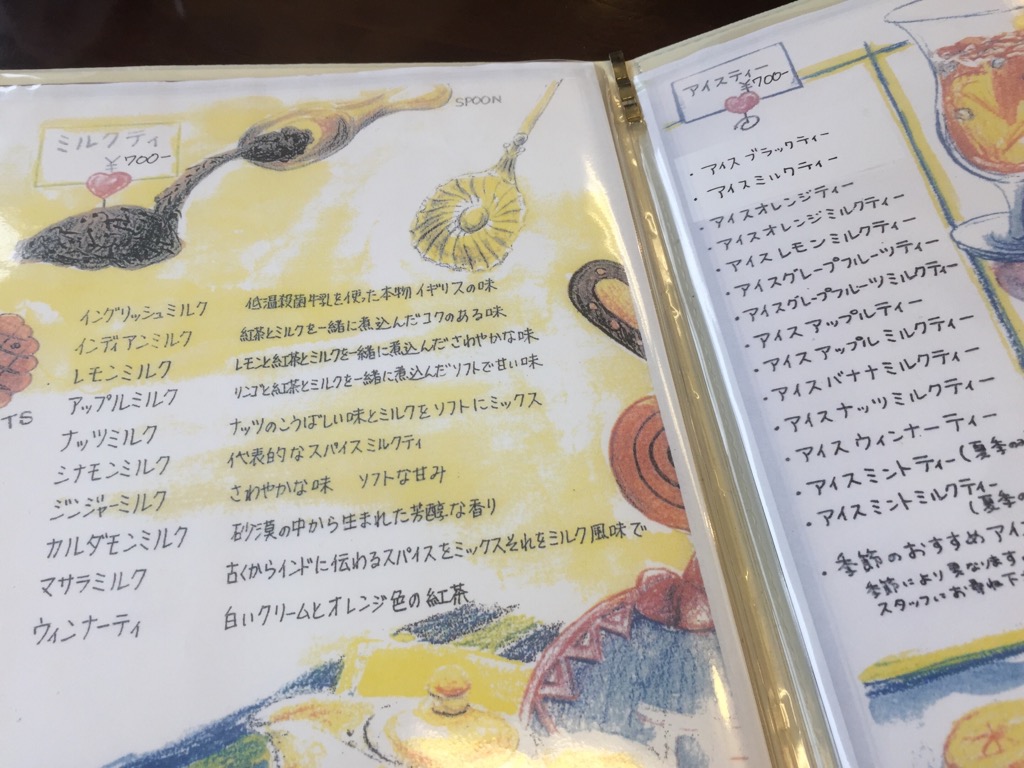 SPOON
ミルクティ
¥700-
イングリッシュミルク 低温殺菌牛乳を使った本物イギリスの味
インディアンミルク 紅茶とミルクを一緒に煮込んだコクのある味
レモンミルク レモンと紅茶とミルクを一緒に煮込んださわやかな味
アップルミルク リンゴと紅茶とミルクを一緒に煮込んだソフトで甘い味
TS
ナッツミルク ナッツのこうばしい味とミルクをソフトにミックス
シナモンミルク 代表的なスパイスミルクティ
ジンジャーミルク さわやかな味 ソフトな甘み
カルダモンミルク 砂漠の中から生まれた芳醇な香り
マサラミルク 古くからインドに伝わるスパイスをミックスそれをミルク風味で
ウィンナーティ 白いクリームとオレンジ色の紅茶
アイスティー
¥700-
・アイスブラックティー
・アイスミルクティー
・アイスオレンジティー
・アイスオレンジミルクティー
・アイスレモンミルクティー
・アイスグレープフルーツティー
・アイスグレープフルーツミルクティー
・アイスアップルティー
・アイスアップルミルクティー
・アイスバナナミルクティー
・アイスナッツミルクティー
・アイスウィンナーティー
・アイスミントティー(夏季の
・アイスミントミルクティー
(夏季の
・季節のおすすめアイ
季節により異なります
スタッフにお尋ね下